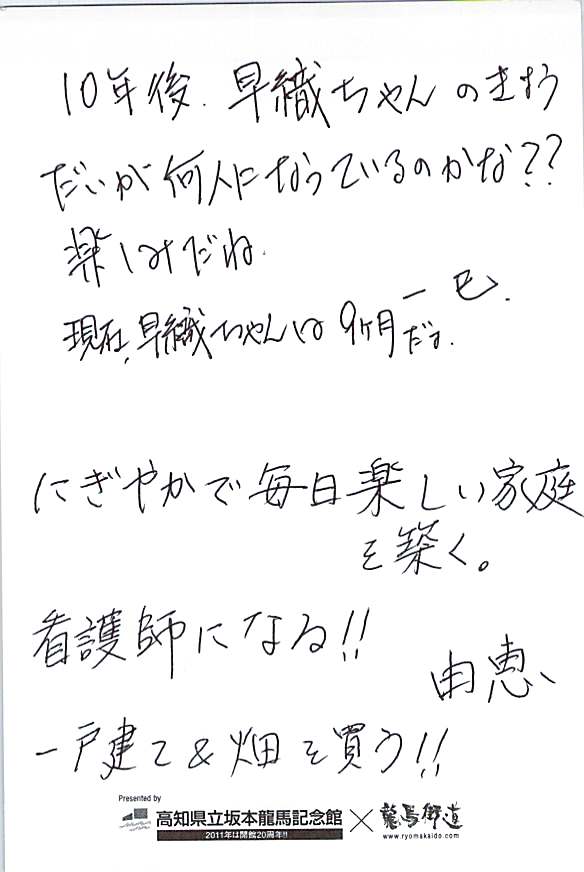 10年後、早織ちゃんのきょう
だいが何人になっているのかな??
楽しみだね、
一巳、
現在、早織ちゃんは9ヶ月だよ、
にぎやかで毎日楽しい家庭
を築く。
看護師になる!!
由恵、
一戸建て&畑を買う!!
Presented by
高知県立坂本龍馬記念館×龍馬街道
2011年は開館20周年!!
www.ryomakaido.com